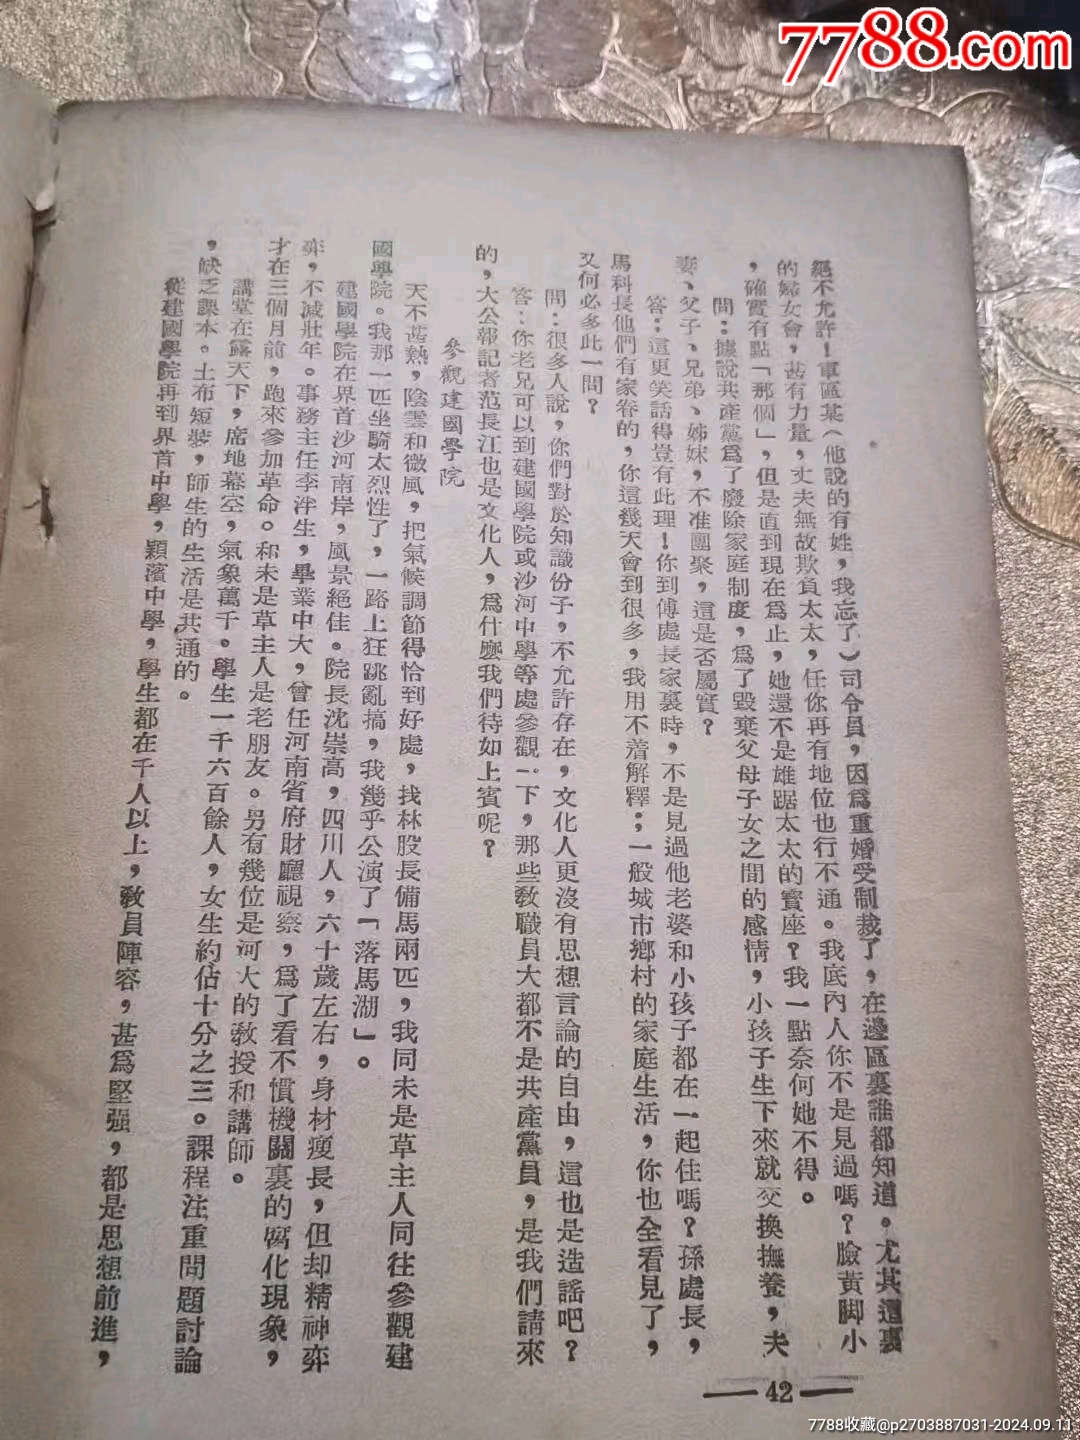 7788.com
絕不允許！軍區某（他說的有姓，我忘了）司令員，因爲重婚受制裁了，在邊區裏誰都知道。尤其這裏
的婦女會，甚有力量，丈夫無故欺負太太，任你再有地位也行不通。我底內人你不是見過嗎？臉黃脚小
，確實有點「那個」，但是直到現在爲止，她還不是雄踞太太的寶座？我一點奈何她不得。
問：據說共產黨爲了廢除家庭制度，爲了毀棄父母子女之間的感情，小孩子生下來就交換撫養，夫
妻、父子、兄弟、姊妹，不准團聚，這是否屬實？
答：這更笑話得豈有此理！你到傅處長家裏時，不是見過他老婆和小孩子都在一起住嗎？孫處長，
馬科長他們有家眷的，你這幾天會到很多，我用不着解釋；一般城市鄉村的家庭生活，你也全看見了，
又何必多此一問？
問：很多人說，你們對於知識份子，不允許存在，文化人更沒有思想言論的自由，這也是造謠吧？
答：你老兄可以到建國學院或沙河中學等處參觀一下，那些敎職員大都不是共產黨員，是我們請來
的，大公報記者范長江也是文化人，爲什麼我們待如上賓呢？
參觀建國學院
天不甚熱，陰雲和微風，把氣候調節得恰到好處，找林股長備馬兩匹，我同未是草主人同往參觀建
國學院。我那一匹坐騎太烈性了，一路上狂跳亂搞，我幾乎公演了「落馬湖」。
建國學院在界首沙河南岸，風景絕佳。院長沈崇高，四川人，六十歲左右，身材瘦長，但却精神弈
弈，不減壯年。事務主任李泮生，畢業中大，曾任河南省府財廳視察，爲了看不慣機關裏的腐化現象，
才在三個月前，跑來參加革命。和未是草主人是老朋友。另有幾位是河大的敎授和講師。
講堂在露天下，席地幕空，氣象萬千。學生一千六百餘人，女生約佔十分之三。課程注重問題討論
，缺乏課本。土布短裝，師生的生活是共通的。
從建國學院再到界首中學，潁濱中學，學生都在千人以上，敎員陣容，甚爲堅强，都是思想前進，
42
7788收藏@p2703887031-2024.09.11